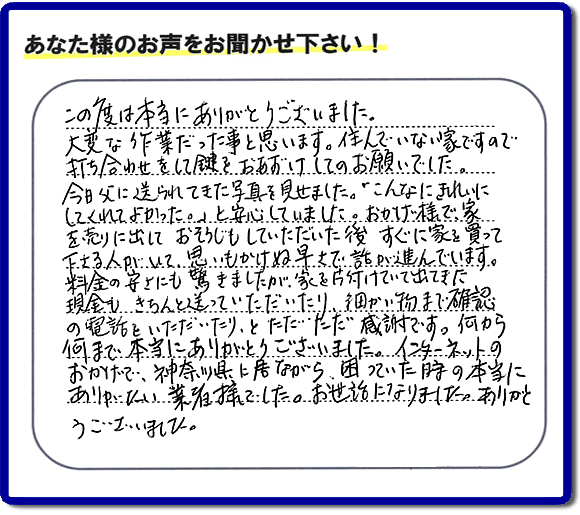 あなた様のお声をお聞かせ下さい！
この度は本当にありがとうございました。
大変な作業だった事と思います。住んでいない家ですので
打ち合わせをして鍵をおあずけしてのお願いでした。
今日父に送られてきた写真を見せました。「こんなにきれいに
してくれてよかった。」と安心していました。おかげ様で、家
を売りに出して おそうじもしていただいた後 すぐに家を買って
下さる人がいて、思いもかけぬ早さで、話が進んでいます。
料金の安さにも驚きましたが、家を片付けていて出てきた
現金も きちんと送っていただいたり、細かい物まで確認
の電話をいただいたり、と ただただ 感謝です。何から
何まで本当にありがとうございました。インターネットの
おかげで、神奈川県に居ながら、困っていた時の本当に
ありがたい 業者様でした。お世話になりました。ありがと
うございました。